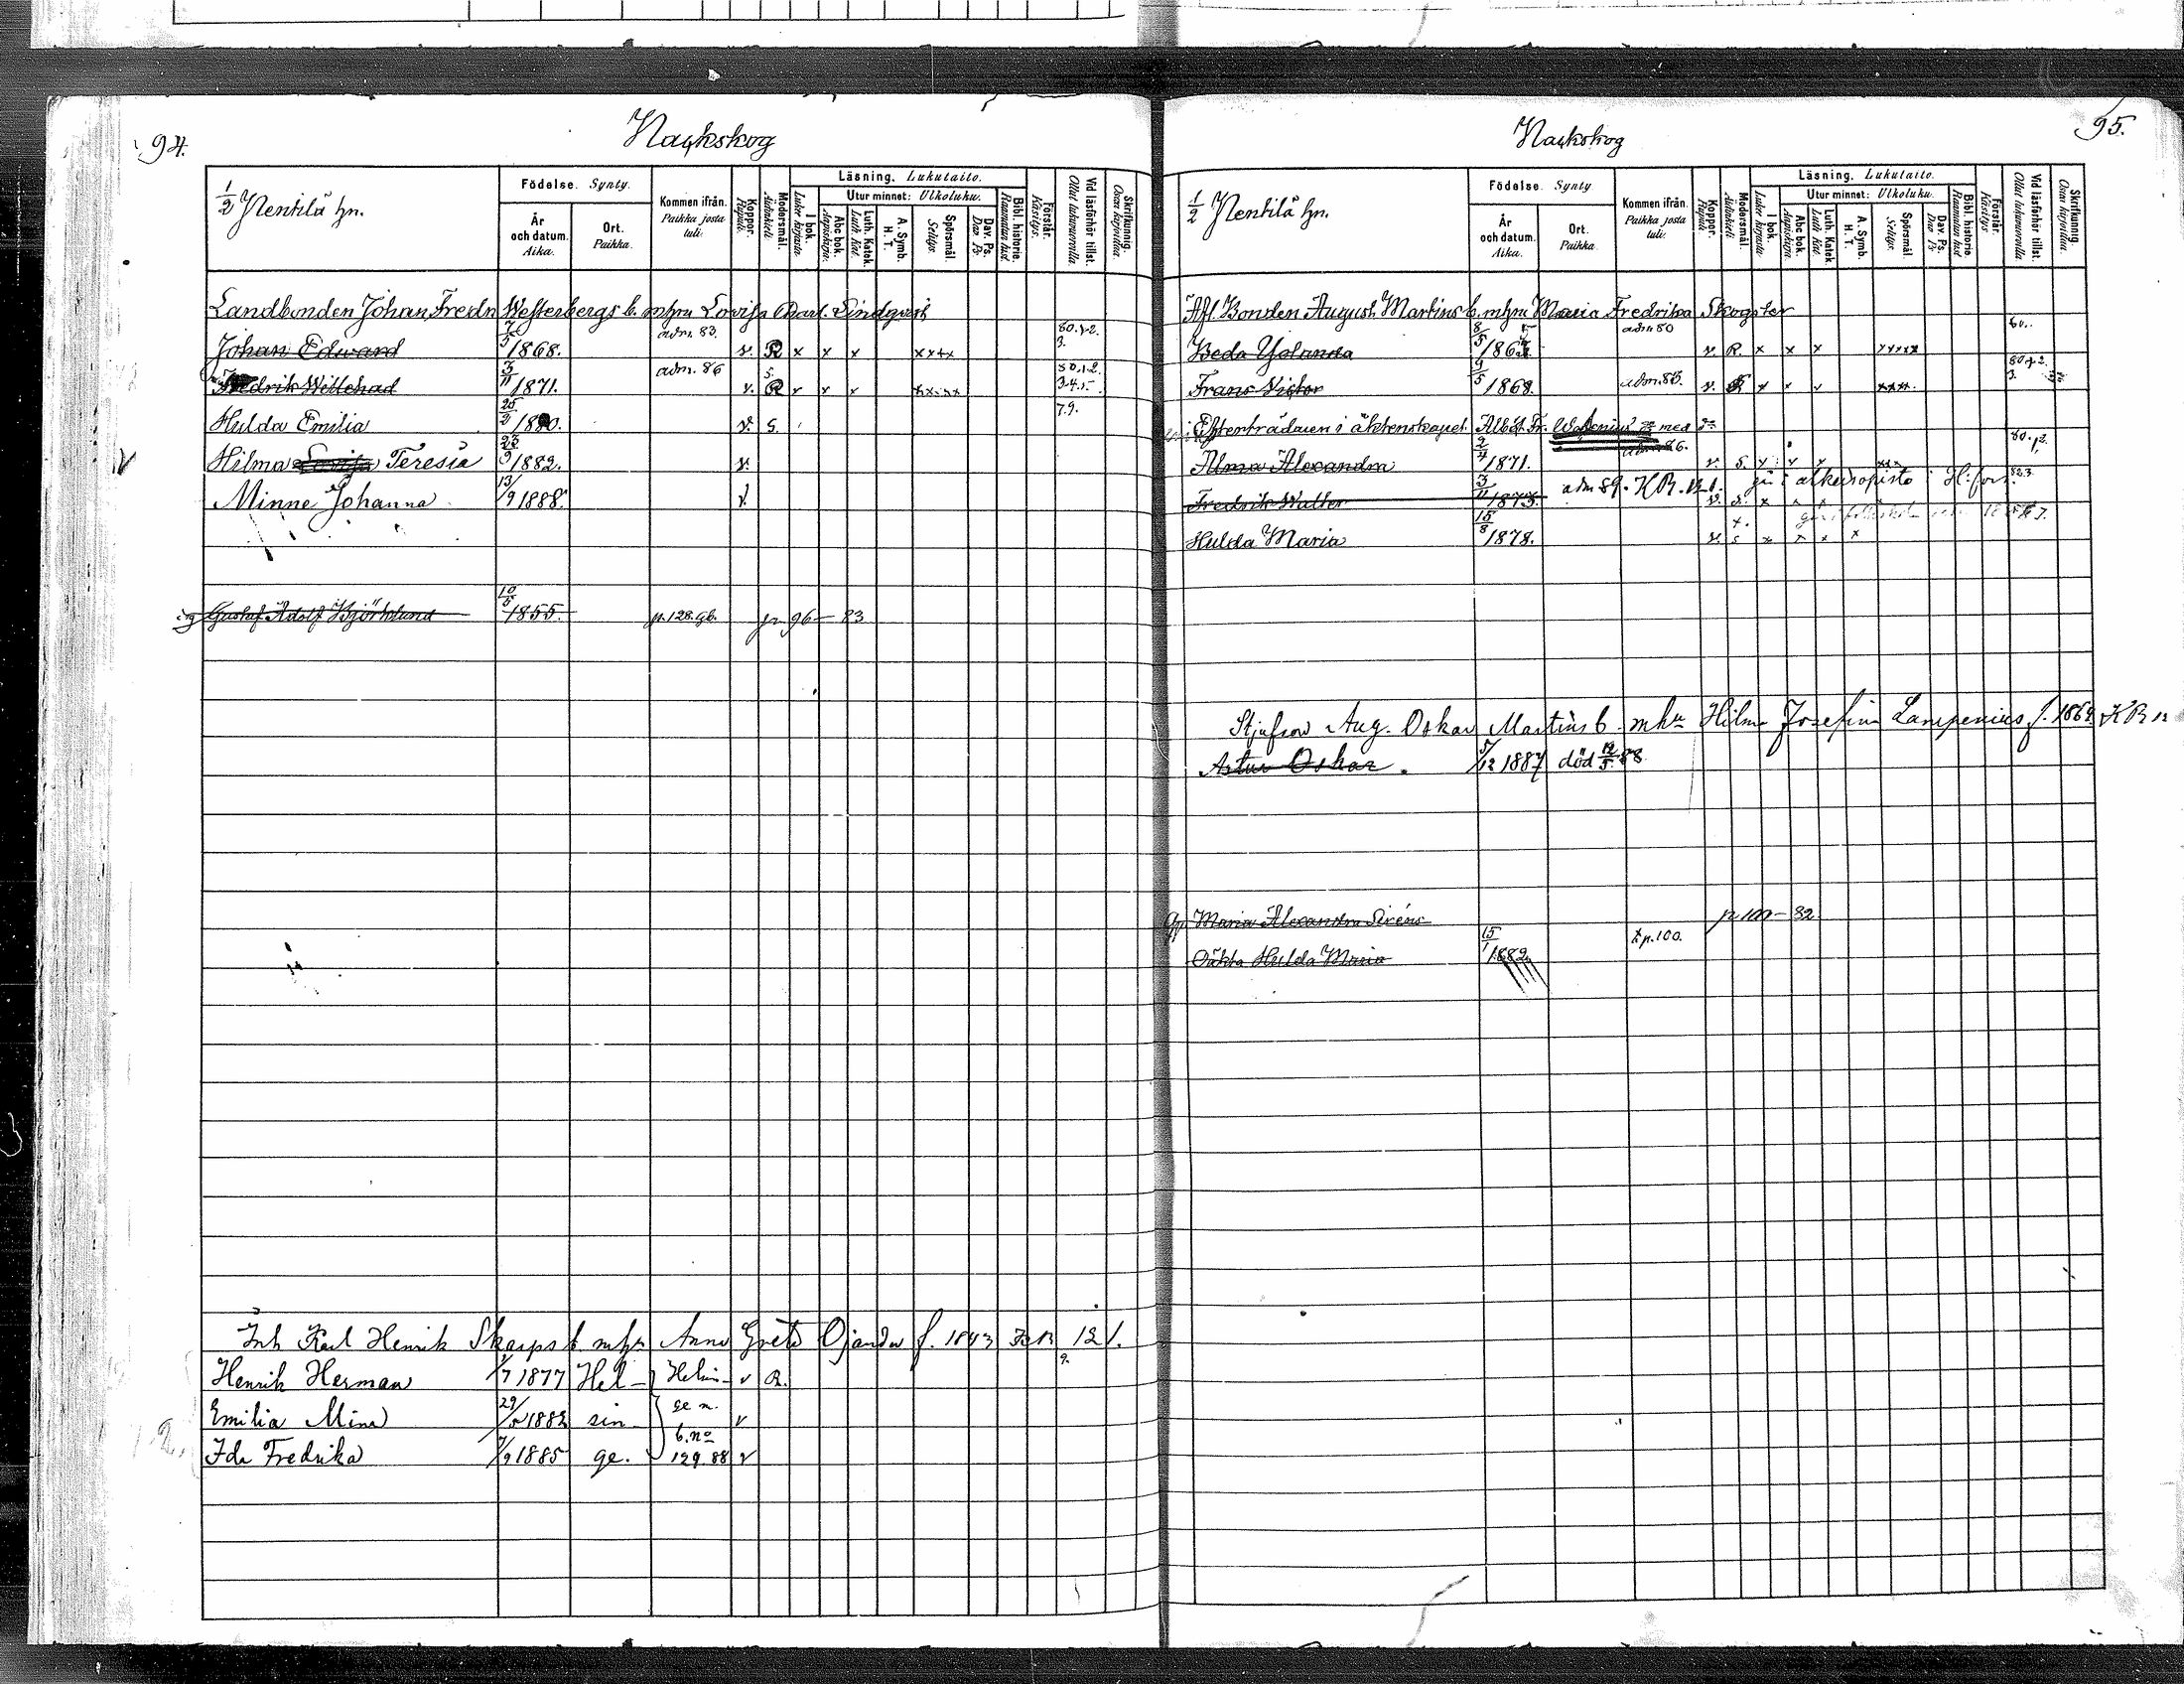 94.
Nackskog
1/2 Nentilä hn.
Födelse. Synty.
År och datum. Aika.
Ort. Paikka.
Kommen ifrån. Paikka josta tuli.
Koppor. Rupuli.
Modersmål. Äidinkieli
Läsning. Lukutaito.
I bok. Luku kirjasta.
Utur minnet: Ulkoluku.
Abc bok. Aapiskirja.
Luth. Katek. Luth. Kat.
A. Symb. H. T.
Spörsmål. Selitys.
Dav. Ps. Dav. Ps.
Bibl. historie. Raamatun hist.
Förstår. Käsitys.
Vid läsförhör tillst. Ollut lukuvuorolla.
Skrifkunnig. Osaa kirjoittaa.
Landbonden Johan Fredr. Westerbergs b. m hru Lovisa Charl. Lindqvist
Johan Edward 7/5 1868. adm. 83. v. R x x x xxxx 80.1.2. 3.
Fredrik Willehad 3/11 1871. adm. 86 v. R x x x xxxxx 80.1.2. 3.4.5.
Hulda Emilia 25/2 1880. v. S. 7.9.
Hilma Lovisa Teresia 23/9 1882. v.
Minne Johanna 13/9 1888. v.
Gustaf Adolf Björklund 10/5 1855. p. 128. gb. p 96 - 83
Inh Karl Henrik Skarps b m hru Anna Greta Ojander f. 1843 KB 12 1.
Henrik Herman 1/7 1877 Hel- Helsin- v R. 9.
Emilia Mina 29/5 1882 sin- ge n. v
Ida Fredrika 7/9 1885 ge. b. no 129. 88 v
95.
Nackskog
1/2 Nentilä hn.
Födelse. Synty
År och datum. Aika.
Ort. Paikka.
Kommen ifrån. Paikka josta tuli.
Koppor. Rupuli.
Modersmål. Äidinkieli
Läsning. Lukutaito.
I bok. Luku kirjasta.
Utur minnet: Ulkoluku.
Abc bok. Aapiskirja.
Luth. Katek. Luth. Kat.
A. Symb. H. T.
Spörsmål. Selitys.
Dav. Ps. Dav. Ps.
Bibl. historie. Raamatun hist.
Förstår. Käsitys.
Vid läsförhör tillst. Ollut lukuvuorolla
Skrifkunnig. Osaa kirjoittaa.
Afl. Bonden August Martins b. m hru Maria Fredrika Skogster
Beda Yolanda 8/5 186 adm 80 v. R. x x x xxxxx 80..
Frans Victor 9/5 1868. adm. 85. v. x x v xxx. 80.1.2. 3.
Efterträdaren i äktenskapet Albet Fr. med
Alma Alexandra 9/4 1871. adm 86. v. S. x x x xxx 80.1.2.
Fredrik Walter 3/11 1873. adm 89. KB. 12 1. v. S. x x x x 82.3.
Hulda Maria 15/8 1878. v. s x x x x
Stjufson Aug. Oskar Martins b. m hru Hilma Josefina Lampenius f. 1869 KB 12
Artur Oskar. 5/12 1887 död 19/5 88.
Maria Alexandra Siréns p 100 - 82
Oäkta Hulda Maria 15/1 1882 p. 100.